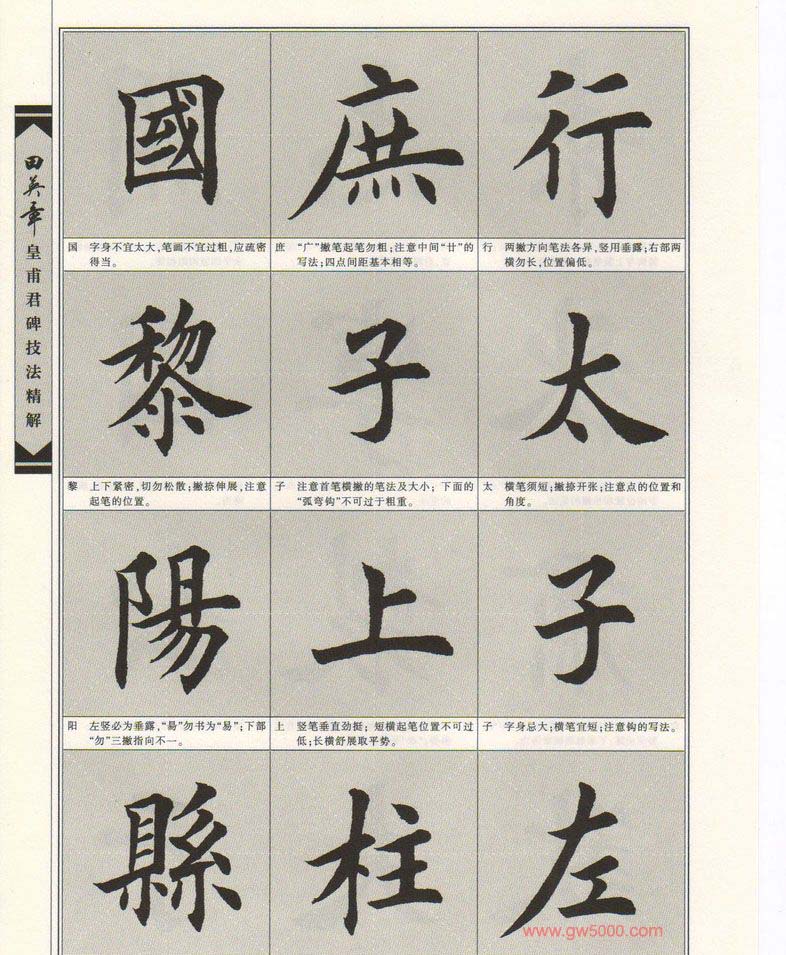 田英章皇甫君碑技法精解
行
行 两撇方向笔法各异,竖用垂露;右部两
横勿长,位置偏低。
太
太 横笔须短;撇捺开张;注意点的位置和
角度。
子
子 字身忌大;横笔宜短;注意钩的写法。
左
庶
庶 “广”撇笔起笔勿粗;注意中间“廿”的
写法;四点间距基本相等。
子
子 注意首笔横撇的笔法及大小;下面的
“弧弯钩”不可过于粗重。
上
上 竖笔垂直劲挺;短横起笔位置不可过
低;长横舒展取平势。
柱
國
国 字身不宜太大,笔画不宜过粗,应疏密
得当。
黎
黎 上下紧密,切勿松散;撇捺伸展,注意
起笔的位置。
陽
阳 左竖必为垂露,“昜”勿书为“易”;下部
“勿”三撇指向不一。
縣
www.gw5000.com